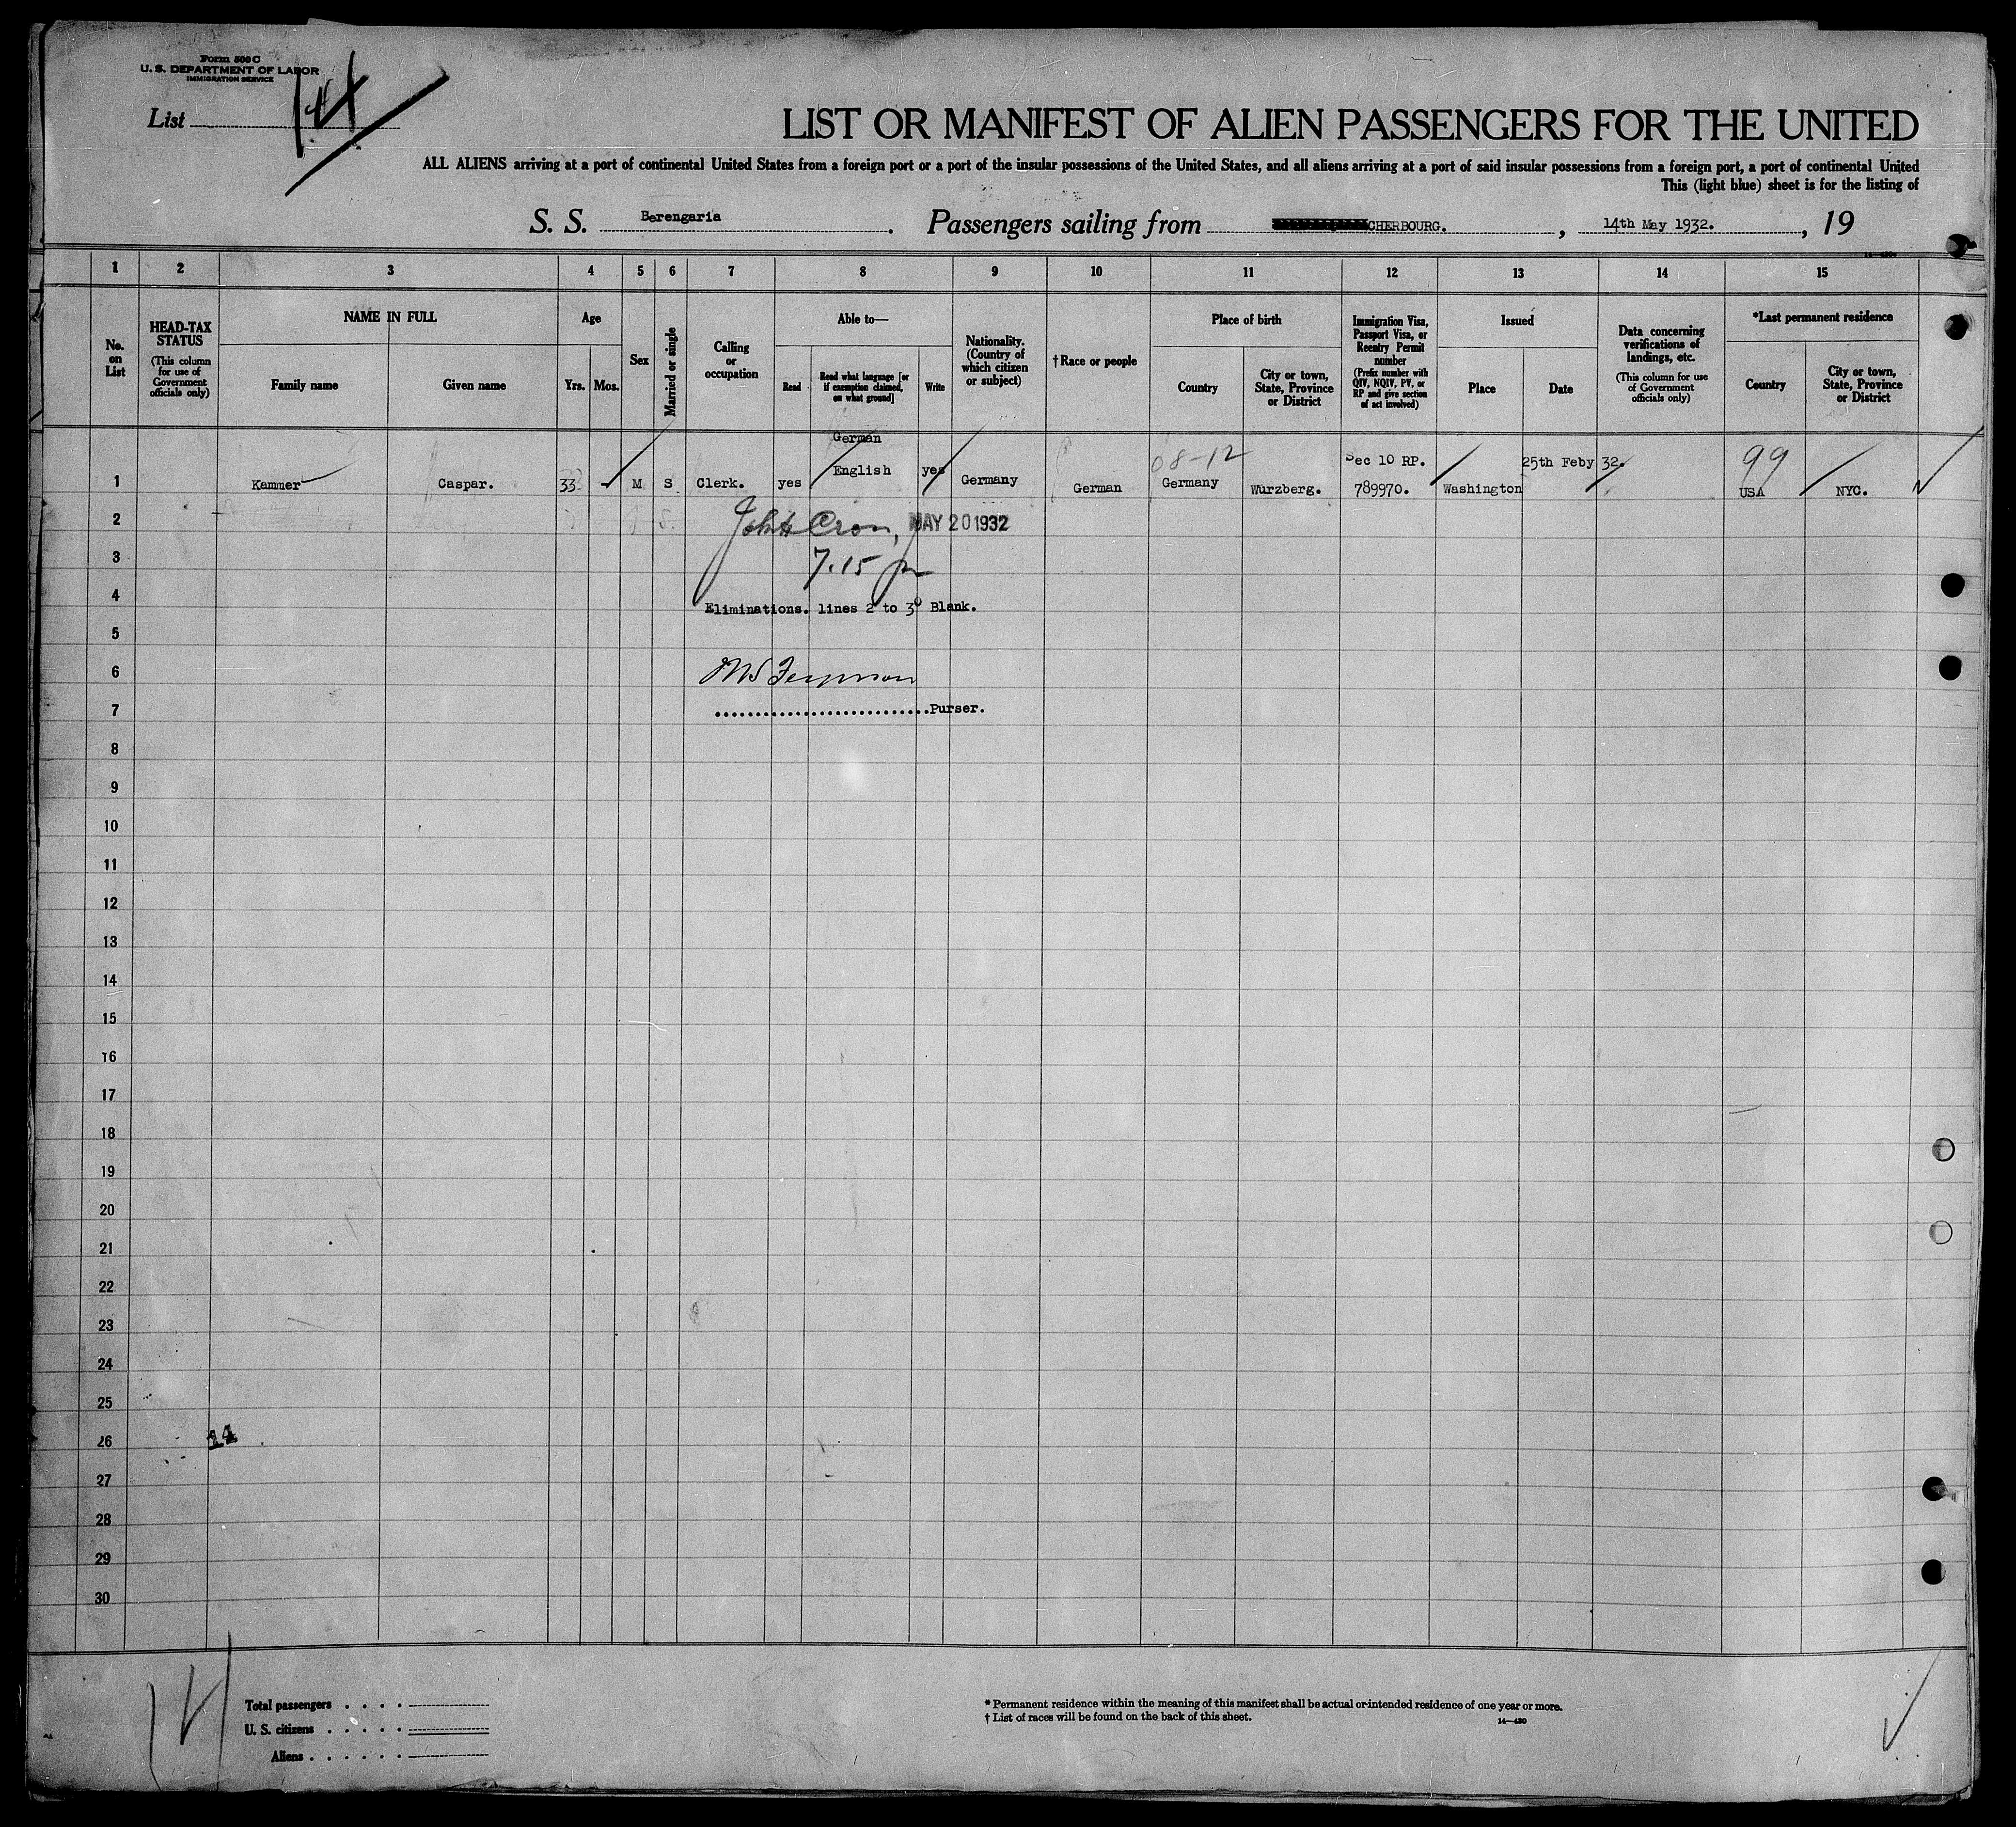 Form 500 C
U. S. DEPARTMENT OF LABOR
IMMIGRATION SERVICE
List 14
LIST OR MANIFEST OF ALIEN PASSENGERS FOR THE UNITED
ALL ALIENS arriving at a port of continental United States from a foreign port or a port of the insular possessions of the United States, and all aliens arriving at a port of said insular possessions from a foreign port, a port of continental United
This (light blue) sheet is for the listing of
S. S. Berengaria. Passengers sailing from CHERBOURG. , 14th May 1932. , 19
1 2 3 4 5 6 7 8 9 10 11 12 13 14 15
No. on List
HEAD-TAX STATUS
(This column for use of Government officials only)
NAME IN FULL
Family name
Given name
Age
Yrs. Mos.
Sex
Married or single
Calling or occupation
Able to—
Read
Read what language [or if exemption claimed, on what ground]
Write
Nationality. (Country of which citizen or subject)
† Race or people
Place of birth
Country
City or town, State, Province or District
Immigration Visa, Passport Visa, or Reentry Permit number
(Prefix number with QIV, NQIV, PV, or RP and give section of act involved)
Issued
Place
Date
Data concerning verifications of landings, etc.
(This column for use of Government officials only)
*Last permanent residence
Country
City or town, State, Province or District
German
08-12 Sec 10 RP. 25th Feby 32. 99
English
1 Kammer Caspar. 33 - M S Clerk. yes yes Germany German Germany Wurzberg. 789970. Washington USA NYC.
2 MAY 20 1932
3 7.15 pm
4 Eliminations. lines 2 to 30 Blank.
5
6
7 Purser.
8
9
10
11
12
13
14
15
16
17
18
19
20
21
22
23
24
25
26 14
27
28
29
30
14
Total passengers
U. S. citizens
Aliens
* Permanent residence within the meaning of this manifest shall be actual or intended residence of one year or more.
† List of races will be found on the back of this sheet.
14—430